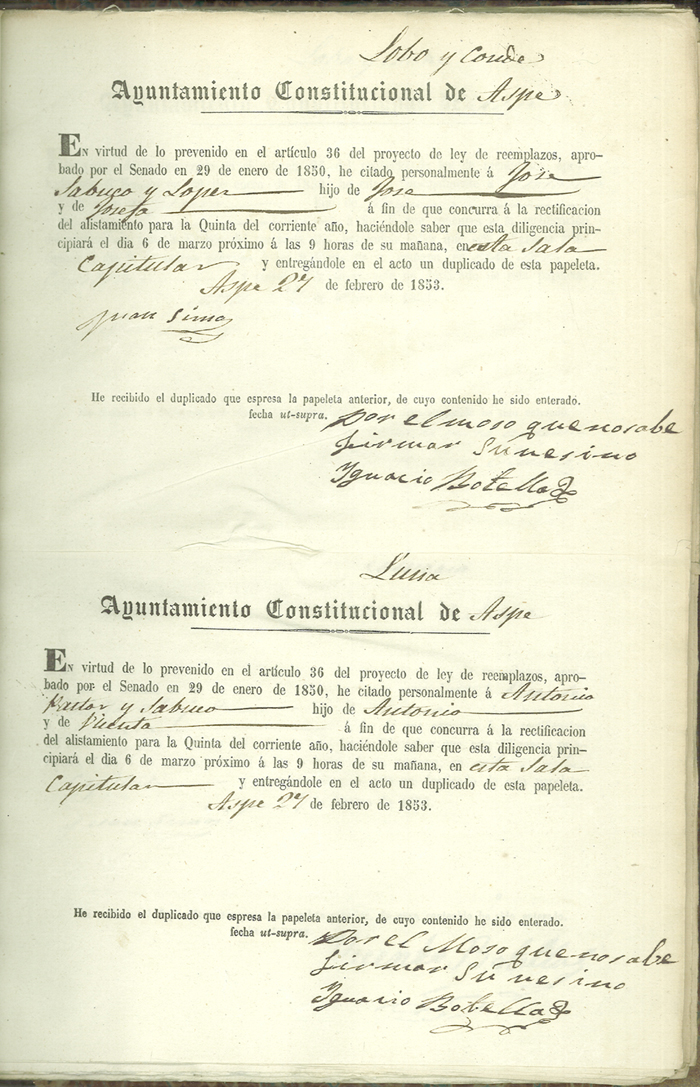 Lobo y Conde
Ayuntamiento Constitucional de Aspe
En virtud de lo prevenido en el artículo 36 del proyecto de ley de reemplazos, apro-
bado por el Senado en 29 de enero de 1850, he citado personalmente á Jose
Sabuco y Lopez hijo de Jose
y de Josefa á fin de que concurra á la rectificacion
del alistamiento para la Quinta del corriente año, haciéndole saber que esta diligencia prin-
cipiará el dia 6 de marzo próximo á las 9 horas de su mañana, en esta Sala
Capitular y entregándole en el acto un duplicado de esta papeleta.
Aspe 27 de febrero de 1853.
Juan
He recibido el duplicado que espresa la papeleta anterior, de cuyo contenido he sido enterado.
fecha ut-supra. Por el moso que no sabe
firmar Su vesino
Ygnacio Botella
Luna
Ayuntamiento Constitucional de Aspe
En virtud de lo prevenido en el artículo 36 del proyecto de ley de reemplazos, apro-
bado por el Senado en 29 de enero de 1850, he citado personalmente á Antonio
Pastor y Sabuco hijo de Antonio
y de Vicenta á fin de que concurra á la rectificacion
del alistamiento para la Quinta del corriente año, haciéndole saber que esta diligencia prin-
cipiará el dia 6 de marzo próximo á las 9 horas de su mañana, en esta Sala
Capitular y entregándole en el acto un duplicado de esta papeleta.
Aspe 27 de febrero de 1853.
He recibido el duplicado que espresa la papeleta anterior, de cuyo contenido he sido enterado.
fecha ut-supra. Por el Moso que no sabe
firmar Su vesino
Ygnacio Botella